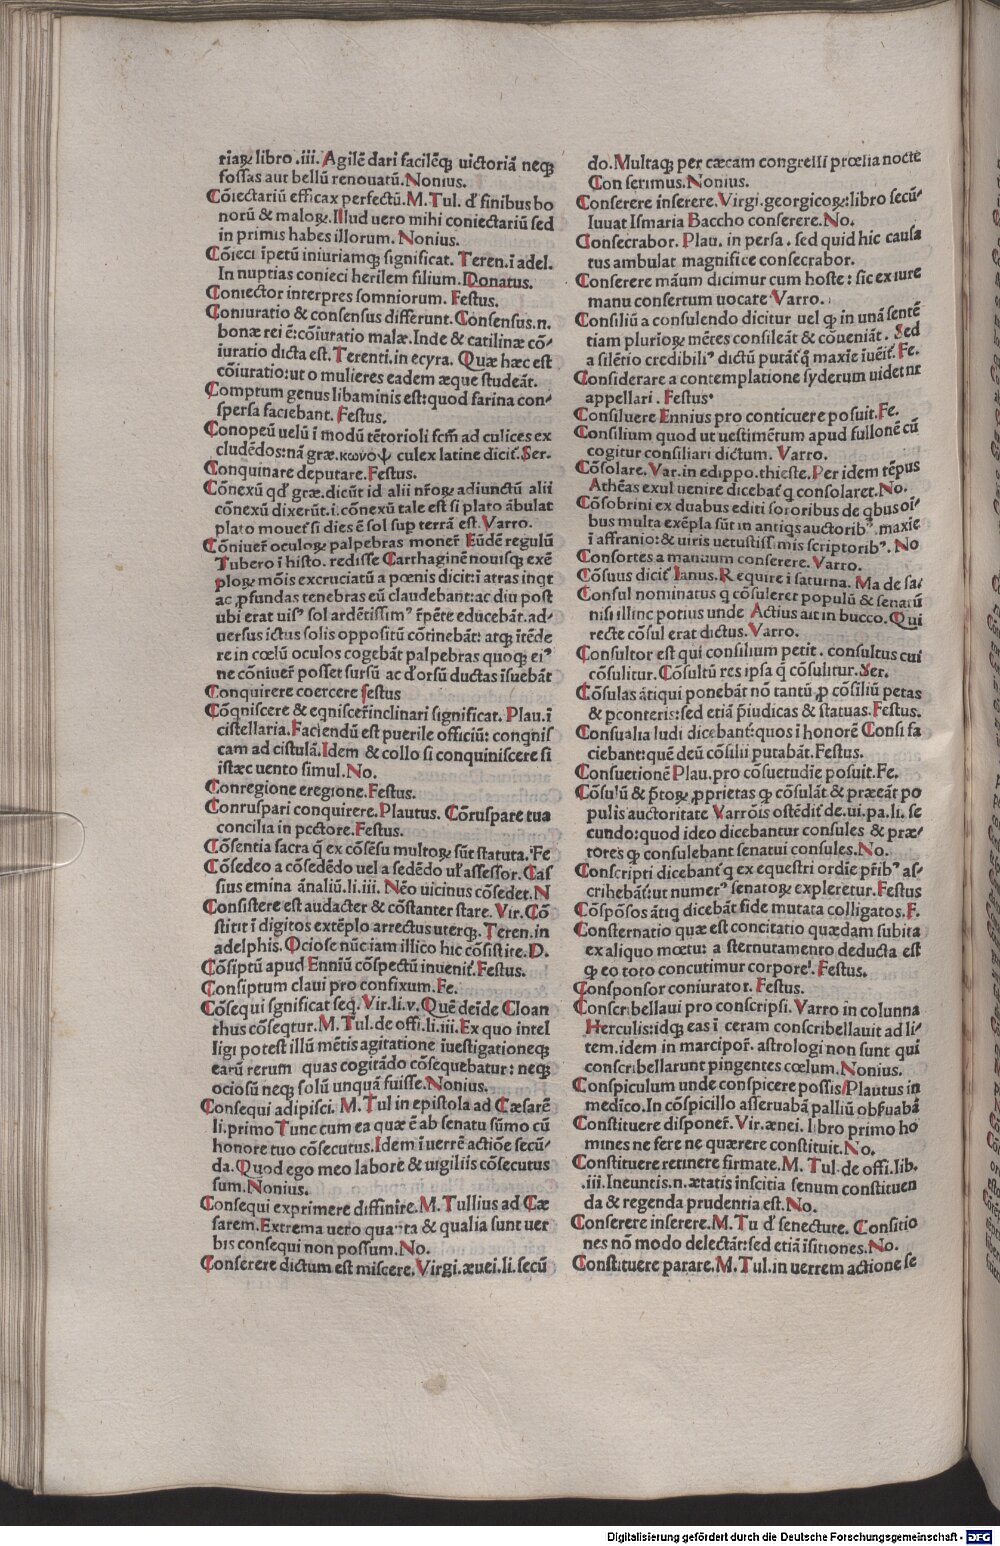 riaꝝ libro .iii. Agilē dari facilēꝗ; uictoriā neꝗ;
fossas aut bellū renouatū. Nonius.
Cōiectariū efficax perfectū. M. Tul. d' finibus bo
norū & maloꝝ. Illud uero mihi coniectariū sed
in primis habes illorum. Nonius.
Cōieci īpetū iniuriamꝗ; significat. Teren. ī adel.
In nuptias conieci herilem filium. Donatus.
Coniector interpres somniorum. Festus.
Coniuratio & consensus differunt. Consensus .n.
bonæ rei ē: cōiuratio malæ. Inde & catilinæ cō/
iuratio dicta est. Terenti. in ecyra. Quæ hæc est
cōiuratio: ut o mulieres eadem æque studeāt.
Comptum genus libaminis est: quod farina con/
spersa faciebant. Festus.
Conopeū uelū ī modū tētorioli fcm̄ ad culices ex
cludēdos: nā græ. κωνοψ culex latine dicit̄. Ser.
Conquinare deputare. Festus.
Cōnexū qd' græ. dicūt id alii nr̄oꝝ adiunctū alii
cōnexū dixerūt. i. cōnexū tale est si plato ābulat
plato mouet̄ si dies ē sol sup terrā est. Varro.
Cōniuer̄ oculoꝝ palpebras moner̄ Eūdē regulū
Tubero ī histo. redisse Carthaginē nouisꝗ; exē
ploꝝ mōis excruciatū a pœnis dicit: ī atras inqt
ac ꝓfundas tenebras eū claudebant: ac diu post
ubi erat uisꝰ sol ardētissimꝰ r̄pēte educebāt. ad/
uersus ictus solis oppositū cōtinebāt: atꝗ; ītēde
re in cœlū oculos cogebāt palpebras quoꝗ; eiꝰ
ne cōniuer̄ posset sursū ac d'orsū ductas īsuebāt
Conquirere coercere festus
Cōqniscere & eqniscer̄ inclinari significat. Plau. ī
cistellaria. Faciendū est puerile officiū: conqnis
cam ad cistulā. Idem & collo si conquiniscere si
istæc uento simul. No.
Conregione eregione. Festus.
Conruspari conquirere. Plautus. Cōruspare tua
concilia in pectore. Festus.
Cōsentia sacra q̄ ex cōsēsu multoꝝ sūt statuta. Fe
Cōsedeo a cōsedēdo uel a sedēdo ul' assessor. Cas
sius emina ānaliū. li. iii. Nēo uicinus cōsedet. N
Consistere est audacter & cōstanter stare. Vir. Cō
stitit ī digitos extēplo arrectus uterꝗ;. Teren. in
adelphis. Ociose nūc iam illico hic cōsistite. D.
Cōsiptū apud Enniū cōspectū inuenit̄. Festus.
Consiptum claui pro confixum. Fe.
Cōsequi sgnificat seq. Vir. li. v. Quē deīde Cloan
thus cōseqtur. M. Tul. de offi. li. iii. Ex quo intel
ligi potest illū mētis agitatione īuestigationeꝗ;
earū rerum quas cogitādo cōsequebatur: neꝗ;
ociosū neꝗ; solū unquā fuisse. Nonius.
Consequi adipisci. M. Tul in epistola ad Cæsarē
li. primo Tunc cum ea quæ ē ab senatu sūmo cū
honore tuo cōsecutus. Idem ī uerrē actiōe secū/
da. Quod ego meo labore & uigiliis cōsecutus
sum. Nonius.
Consequi exprimere diffinire. M. Tullius ad Cæ
sarem. Extrema uero quanta & qualia sunt uer
bis consequi non possum. No.
Conserere dictum est miscere. Virgi. æuei. li. secū
do. Multaꝗ; per cæcam congressi prœlia nocte
Conserimus. Nonius.
Conserere inserere. Virgi. georgicoꝝ: libro secū/
Iuuat Ismaria Baccho conserere. No.
Consecrabor. Plau. in persa. sed quid hic causa
tus ambulat magnifice consecrabor.
Conserere māum dicimur cum hoste: sic ex iure
manu consertum uocate Varro.
Consiliū a consulendo dicitur uel ꝙ in unā sentē
tiam plurioꝝ mētes consileāt & cōueniāt. Sed
a silētio credibiliꝰ dictū putāt q̄ maxīe iuēit̄. Fe.
Considerare a contemplatione syderum uidetur
appellari. Festus.
Consiluere Ennius pro conticuere posuit. Fe.
Consilium quod ut uestimētum apud fullonē cū
cogitur consiliari dictum. Varro.
Cōsolare. Var. in edippo. thieste. Per idem tēpus
Athēas exul uenire dicebat̄ q consolaret. No.
Cōsobrini ex duabus editi sororibus de qbus oī/
bus multa exēpla sūt in antiqs auctoribꝰ. maxīe
ī affranio: & uiris uetustissimis scriptoribꝰ. No
Consortes a manuum conserere. Varro.
Cōsuus dicit̄ Ianus. Require ī saturna. Ma de sa/
Consul nominatus q cōsuleret populū & senatū
nisi illinc potius unde Actius ait in bucco. Qui
recte cōsul erat dictus. Varro.
Consultor est qui consilium petit. consultus cui
cōsulitur. Cōsultū res ipsa q̄ cōsulitur. Ser.
Cōsulas ātiqui ponebāt nō tantū ꝓ cōsiliū petas
& pconteris: sed etiā p̄iudicas & statuas. Festus.
Consualia ludi dicebant̄: quos ī honorē Consi fa
ciebant: quē deū cōsilii putabāt. Festus.
Consuetionē Plau. pro cōsuetudīe posuit. Fe.
Cōsulū & p̄toꝝ ꝓprietas ꝙ cōsulāt & præeāt po
pulis auctoritate Varrōis ostēdit̄ de. ui. pa. li. se
cundo: quod ideo dicebantur consules & præ/
tores ꝙ consulebant senatui consules. No.
Conscripti dicebant̄ q ex equestri ordīe pr̄ibꝰ as/
cribebāt̄: ut numerꝰ senatoꝝ expleretur. Festus
Cōspōsos ātiq dicebāt fide mutata colligatos. F.
Consternatio quæ est concitatio quædam subita
ex aliquo mœtu: a sternutamento deducta est
ꝙ eo toto concutimur corpore. Festus.
Consponsor coniurator. Festus.
Conscribellaui pro conscripsi. Varro in colunna
Herculis: idꝗ; eas ī ceram conscribellauit ad li/
tem. idem in marcipor̄. astrologi non sunt qui
conscribellarunt pingentes cœlum. Nonius.
Conspiculum unde conspicere possis/Plautus in
medico. In cōspicillo asseruabā palliū obf̄uabā
Constituere disponer̄. Vir. ænei. libro primo ho
mines ne fere ne quærere constituit. No.
Constituere retinere firmate. M. Tul. de offi. lib.
.iii. Ineuntis .n. ætatis īscitia senum constituen
da & regenda prudentia est. No.
Conserere inserere. M. Tu d' senectute. Consitio
nes nō modo delectāt: sed etiā īsitiones. No.
Constituere parare. M. Tul. in uerrem actione se
Digitalisierung gefördert durch die Deutsche Forschungsgemeinschaft - DFG